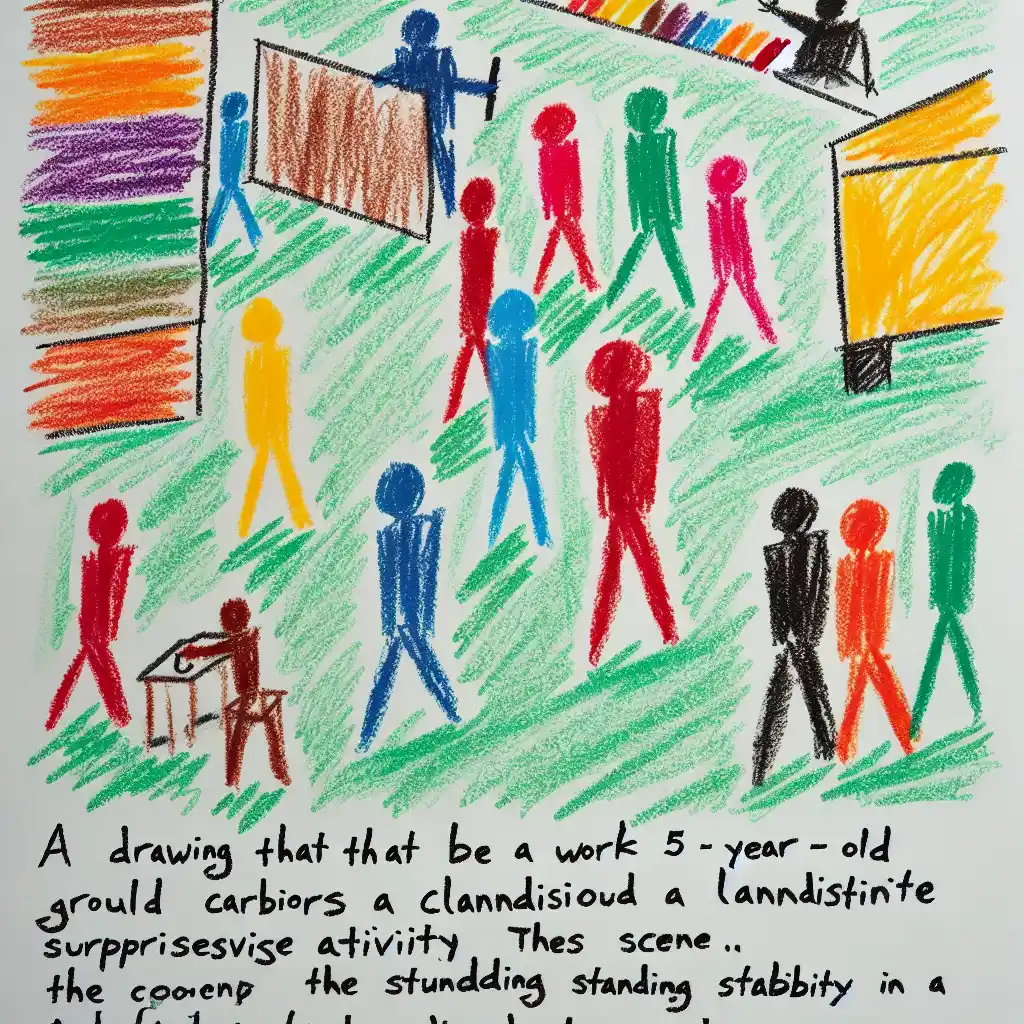 A drawing that that be a work 5-year-old
grould carbiors a clanndisioud a lanndistinite
surpprisesvise ativiity Thes scene..
the cooenp the stundding standing stabbity in a